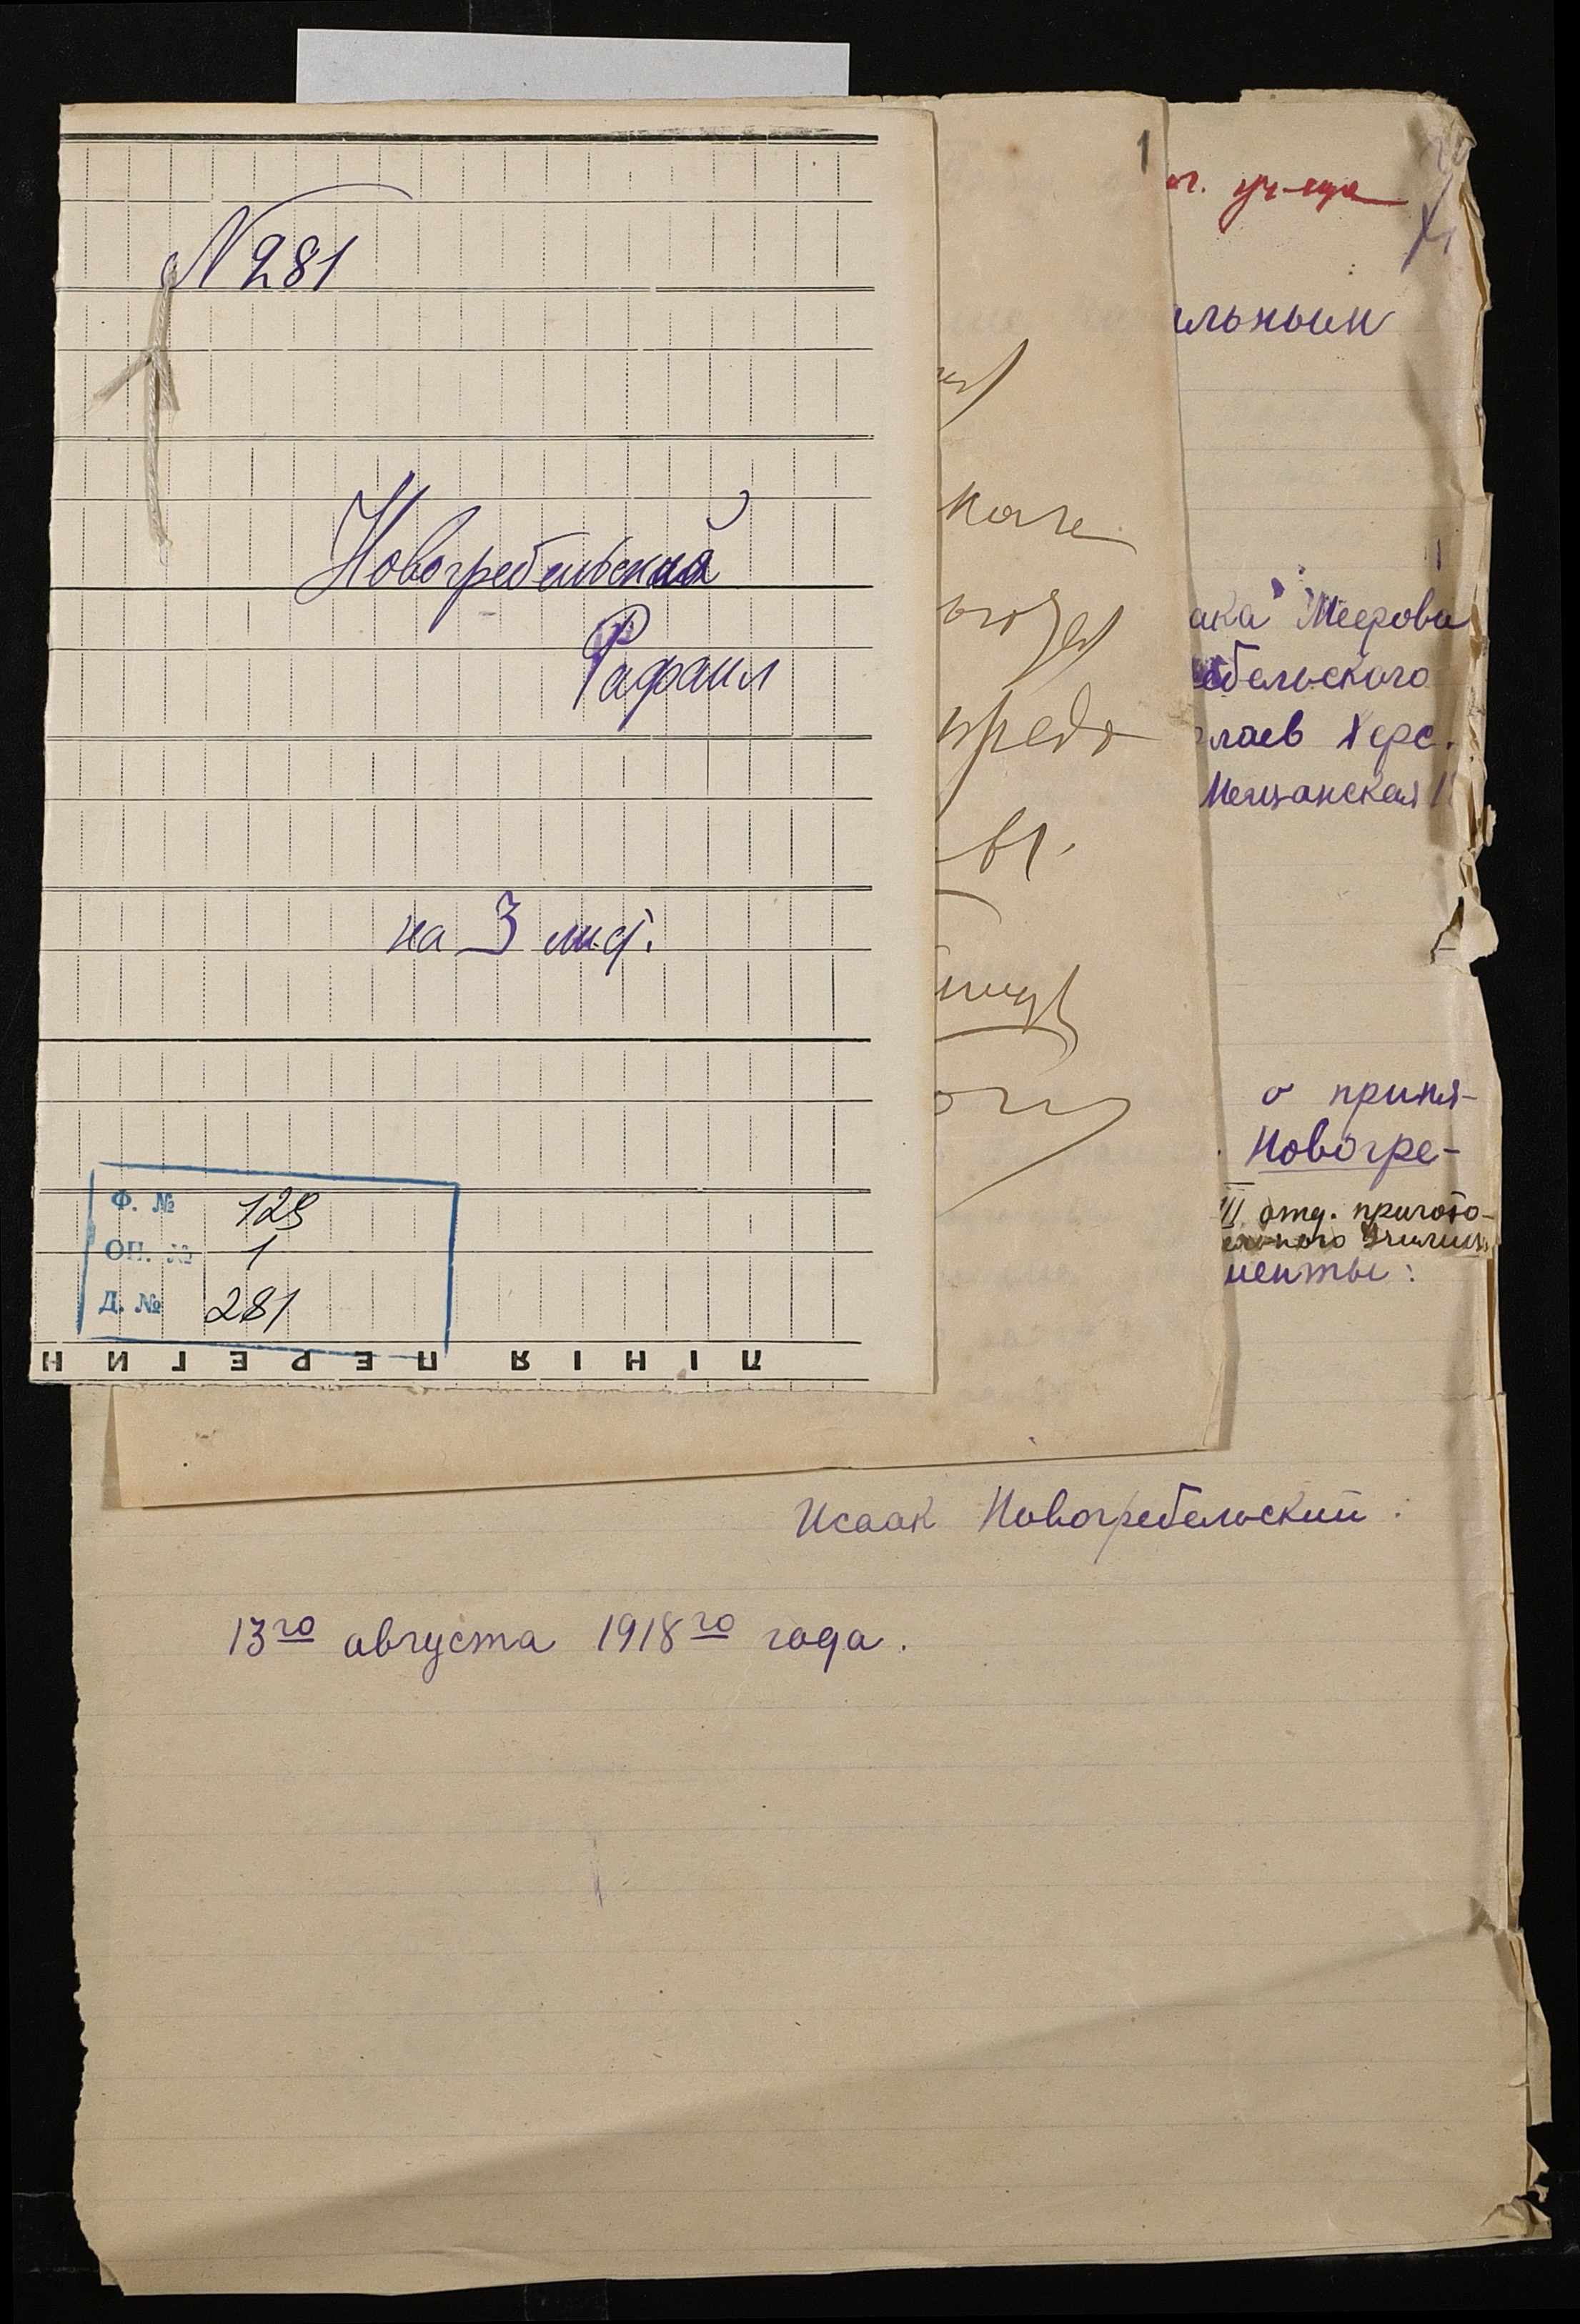 N 281
Новогребельский
Рафаил
на 3 лист.
Ф. № 129
ОП. № 1
Д. № 281
ЛІНІЯ ПЕРЕГИН
1
коле
предо
уч-ща
альным
ака Мееров
ебельского
лаев Херс.
Мещанская
о приня-
Новогре-
III отд. пригото-
ельного Училищ
менты:
Исаак Новогребельский.
13го августа 1918го года.